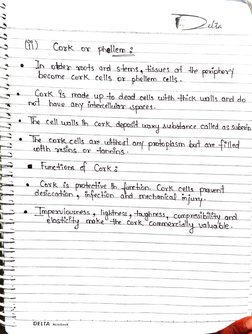 Delta
(ii) Cork or phellem :
• In older roots and stems, tissues at the periphery
become cork cells or phellem cells.
• Cork is made up to dead cells with thick walls and do
not have any intercellular spaces.
• The cell walls in cork deposit waxy substance called as suberin.
• The cork cells are without any protoplasm but are filled
with resins or tannins.
■ Functions of Cork :
• Cork is protective in function. Cork cells prevent
desiccation, infection and mechanical injury.
• Imperviousness, lightness, toughness, compressibility and
elasticity make the cork commercially valuable.
DELTA Notebook